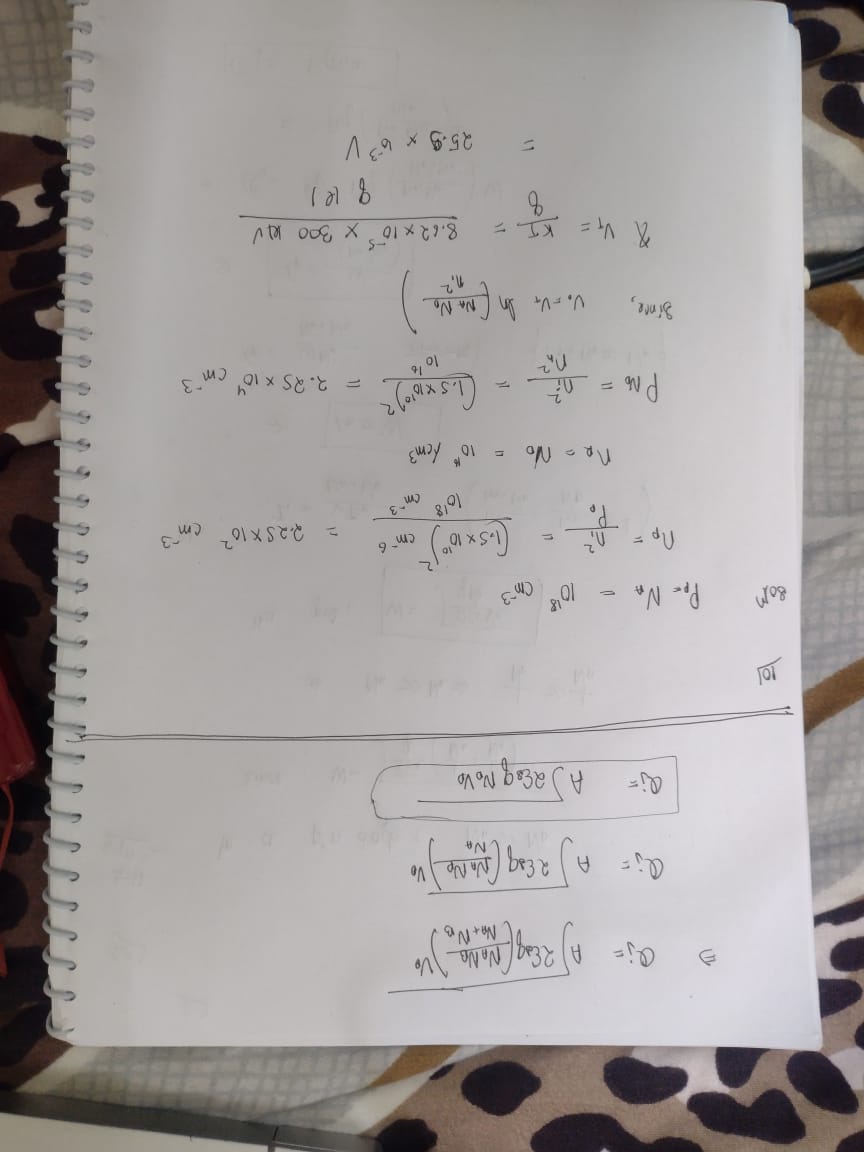 ⇒ Qj = A √(2εsq (NA NB / NA + NB) V0)
Qj = A √(2εsq (NA ND / NA) V0)
Qj = A √(2εsq ND V0)
10/
Soln Pp = NA = 10^18 cm^-3
np = ni^2 / Pp = (1.5 × 10^10)^2 cm^-6 / 10^18 cm^-3 = 2.25 × 10^2 cm^-3
nn = ND = 10^16 /cm3
PN0 = ni^2 / nn^2 = (1.5 × 10^10)^2 / 10^16 = 2.25 × 10^4 cm^-3
Since, V0 = VT ln (NA ND / ni^2)
& VT = KT / q = 8.62 × 10^-5 × 300 eV / q (e)
= 25.9 × 10^-3 V